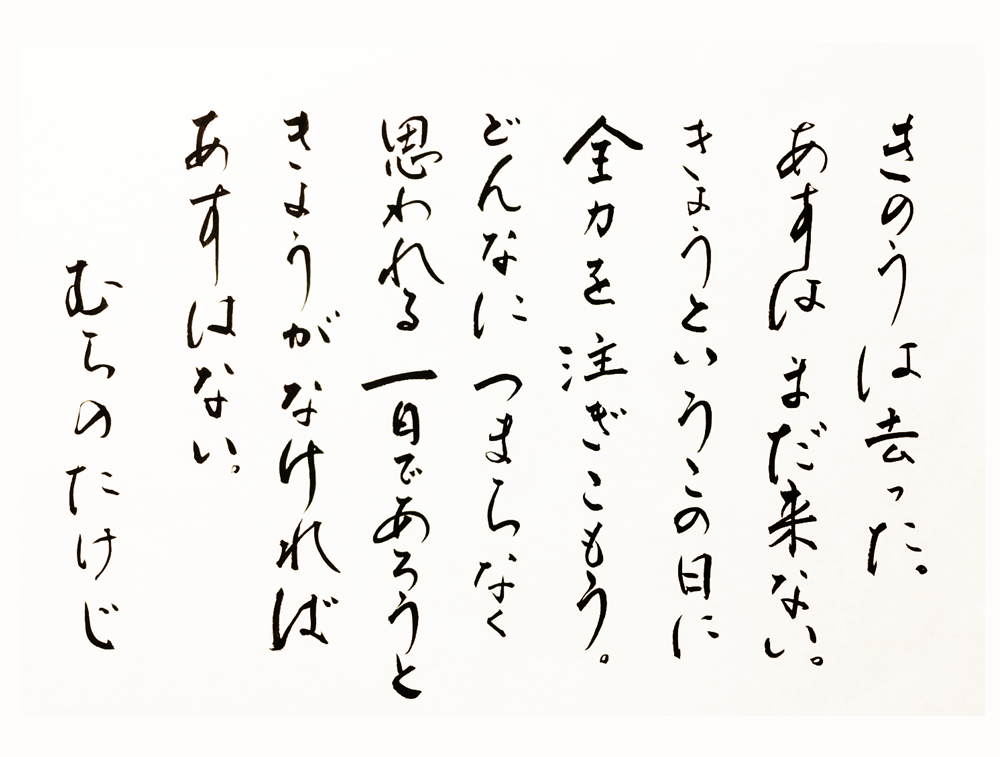 きのうは去った。
あすはまだ来ない。
きょうというこの日に
全力を注ぎこもう。
どんなにつまらなく
思われる一日であろうと
きょうがなければ
あすはない。
むらのたけじ